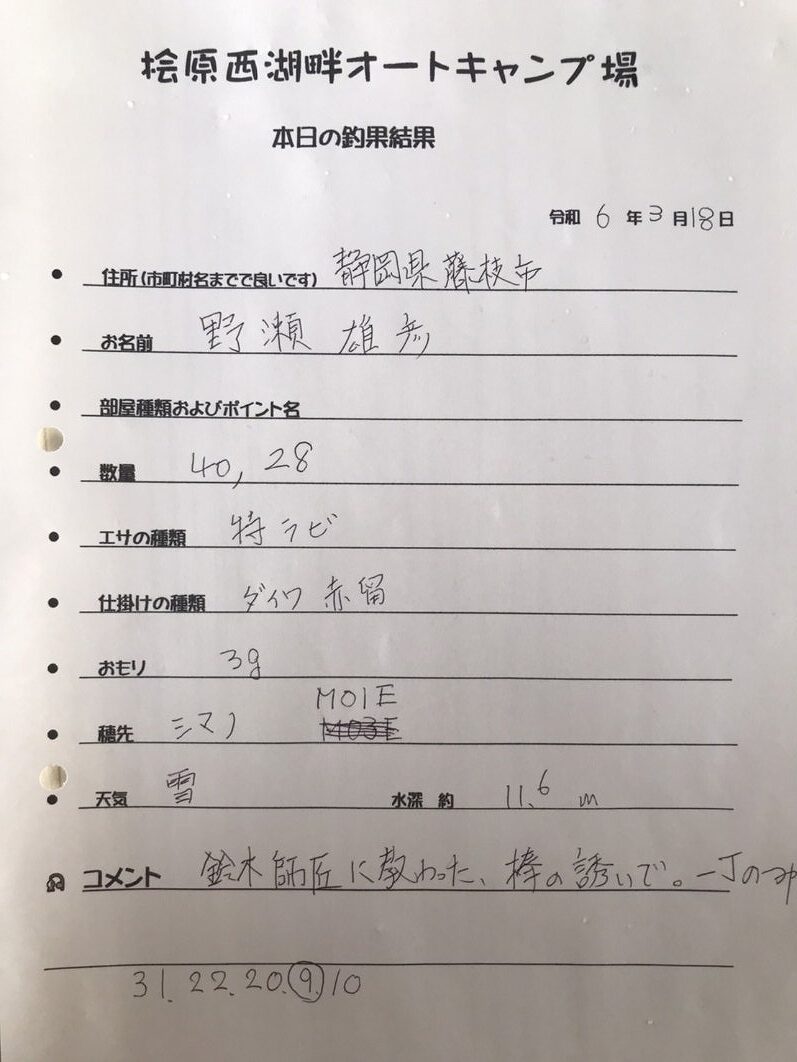 桧原西湖畔オートキャンプ場
本日の釣果結果
令和 6 年 3 月 18 日
住所(市町村名までで良いです) 静岡県藤枝市
お名前 野瀬 雄彦
部屋種類およびポイント名
数量 40, 28
エサの種類 特ラビ
仕掛けの種類 ダイワ 赤留
おもり 3g
M01E
穂先 シマノ M03E
天気 雪 水深 約 11.6 m
コメント 鈴木師匠に教わった、棒の誘いで。一丁のみ
31. 22. 20. 9. 10